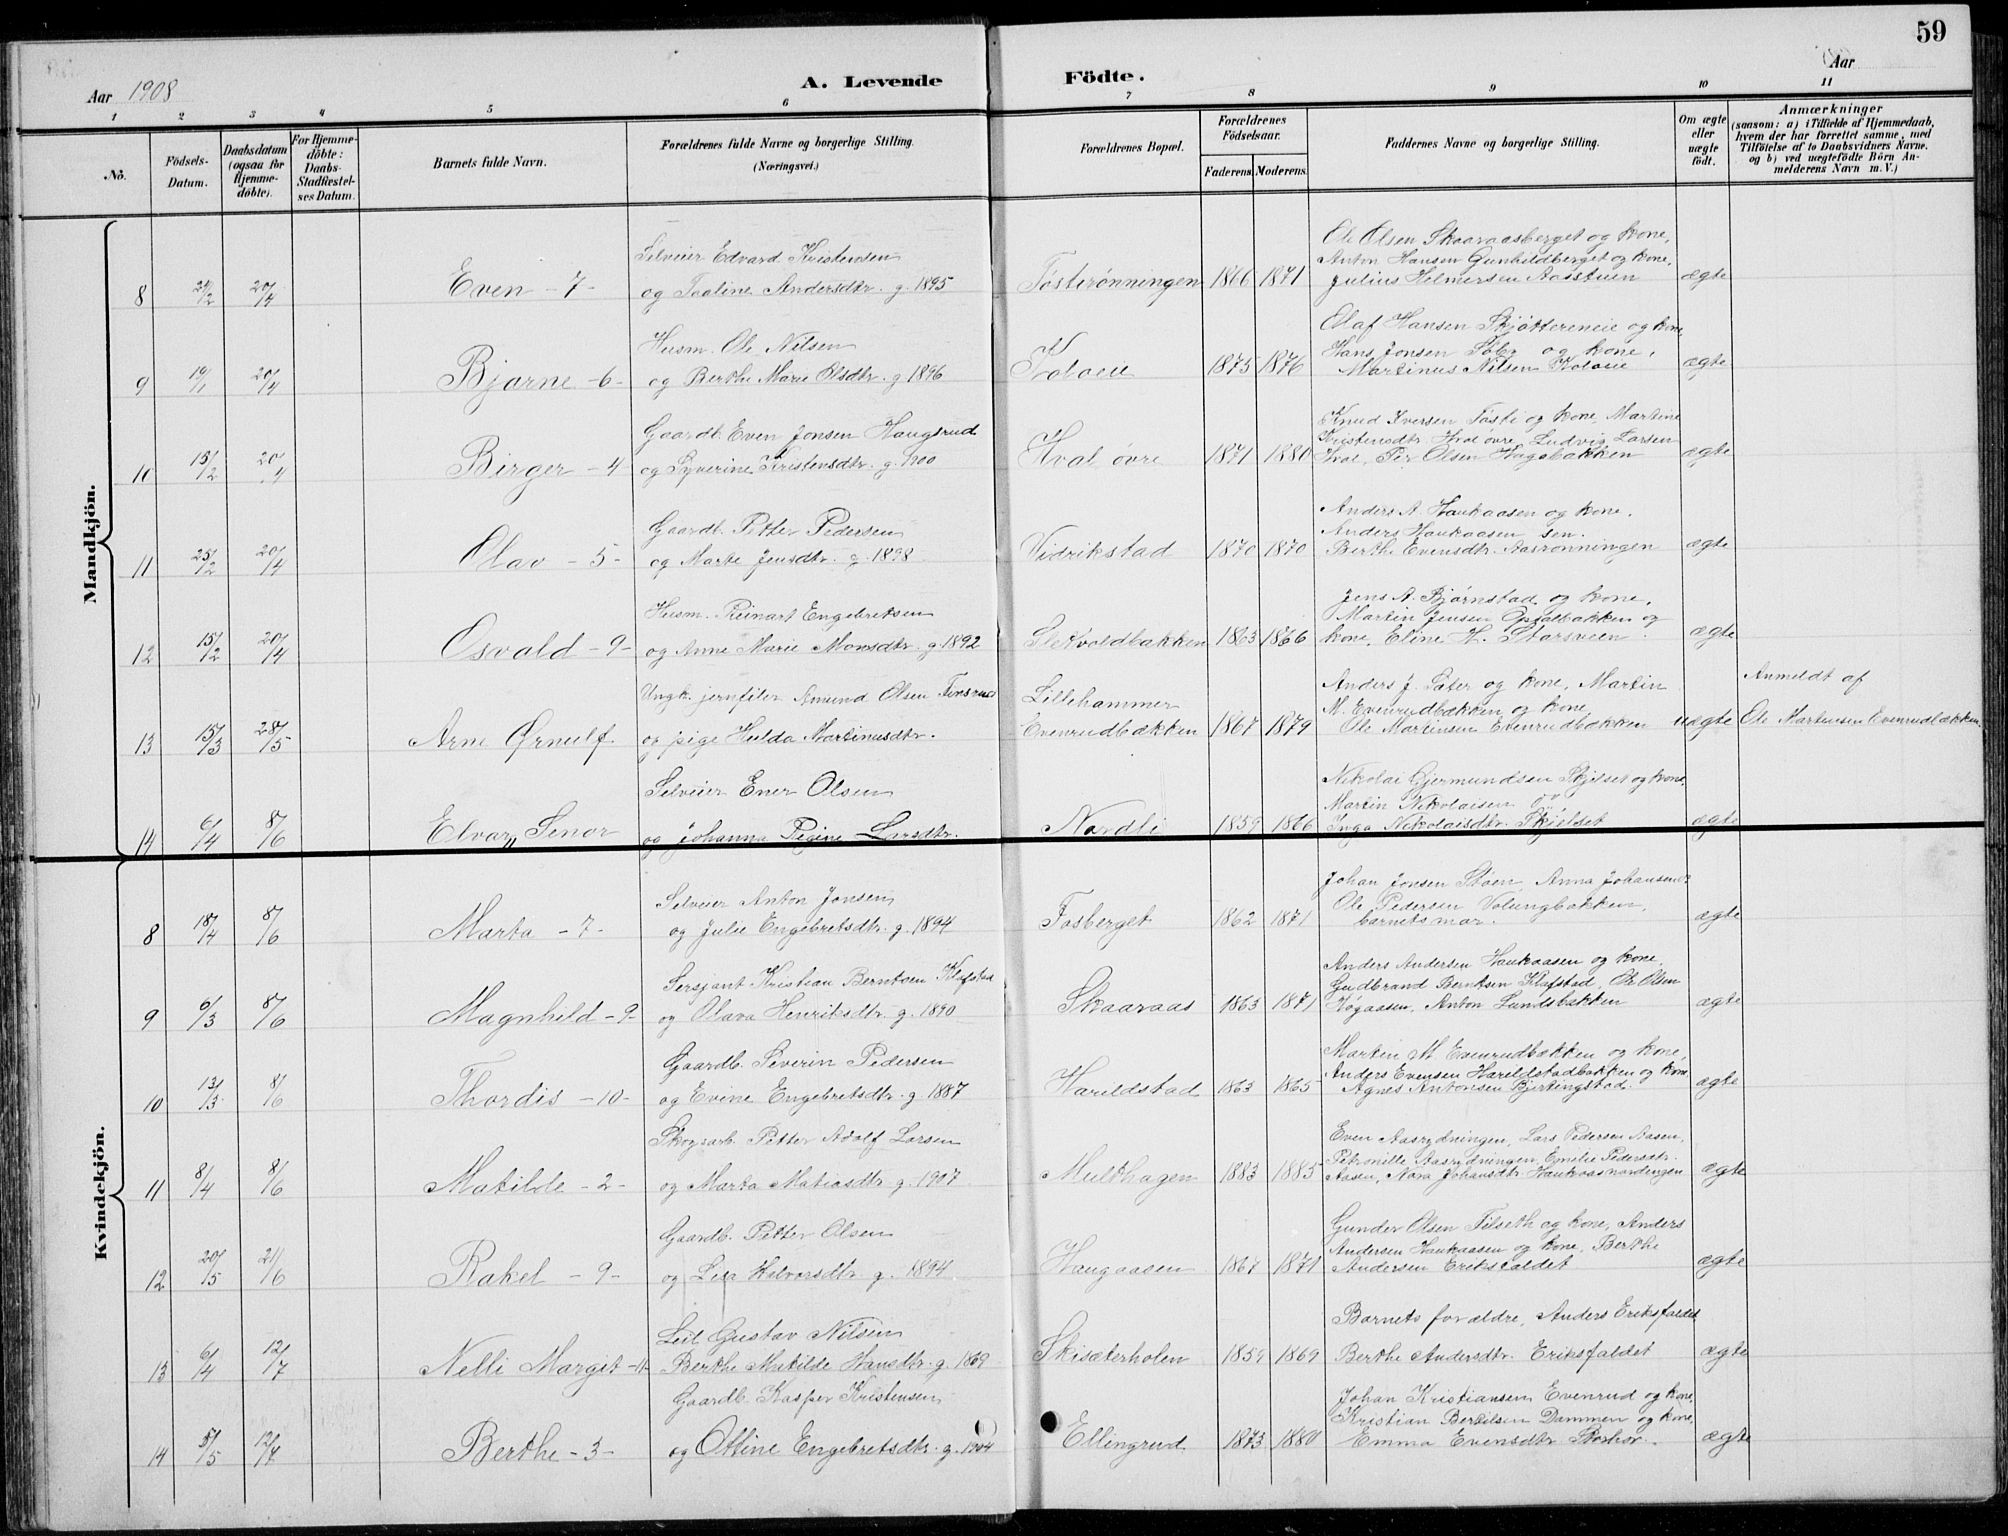 59
Aar 1908
A. Levende
Födte.
Aar
1 2 3 4 5 6 7 8 9 10 11
No.
Födsels-Datum.
Daabsdatum (ogsaa for Hjemmedöbte).
For Hjemmedöbte: Daabs-Stadfæstelses Datum.
Barnets fulde Navn.
Forældrenes fulde Navne og borgerlige Stilling. (Næringsvei.)
Forældrenes Bopæl.
Forældrenes Födselsaar.
Faderens. Moderens.
Faddernes Navne og borgerlige Stilling.
Om ægte eller uægte födt.
Anmærkninger
(saasom: a) i Tilfælde af Hjemmedaab, hvem der har forrettet samme, med Tilföielse af to Daabsvidners Navne. og b) ved uægtefödte Börn Anmelderens Navn m.V.)
Mandkjön.
Selveier Edvard Kristensen
Ole Olsen Skaaraasberget og kone,
Anton Hansen Gunhildberget og kone,
8 24/2 20/4 Even - 7 - og Paoline Andersdtr. g. 1895 Tøstirønningen 1866 1871 Julius Helmersen Aasstuen ægte
Husm. Ole Nilsen
Olaf Hansen Skjøttereneie og kone
Hans Jonsen Sæter og kone,
9 19/1 20/4 Bjarne - 6 - og Berthe Marie Olsdtr. g. 1896 Koloeie 1875 1876 Martinus Nilsen Koloeie ægte
Gaardb. Even Jonsen Haugsrud
Knud Iversen Tøsti og kone, Martine
Kristensdtr. Hval øvre, Ludvig Larsen
10 15/2 20/4 Birger - 4 og Syverine Kristensdtr. g. 1900 Hval øvre 1871 1880 Hval, Per Olsen Hagebakken ægte
Gaardb. Petter Pedersen
Anders A. Haukaasen og kone,
Anders Haukaasen sen.
11 25/2 20/4 Olav - 5 - og Marte Jensdtr. g. 1898 Vidrikstad 1870 1870 Berthe Evensdtr. Aasrønningen ægte
Husm. Reinart Engebretsen
Jens A. Bjørnstad og kone,
Martin Jensen Opsalbakken og
12 15/2 20/4 Osvald - 9 - og Anne Marie Monsdtr. g. 1892 Sletvoldbakken 1863 1866 kone, Eline H. Starsveen ægte
Ungk. jernfiler Amund Olsen
Lillehammer
Anders J. Sæter og kone, Martin
M. Evenrudbækken og kone,
Anmeldt af
13 15/3 28/5 Arne Ørnulf og pige Hulda Martinusdtr. Evenrudbækken 1867 1879 Ole Martinsen Evenrudbækken uægte Ole Martensen Evenrudbækken
Selveier Ener Olsen
Nikolai Gjermundsen Skjelset og kone,
Martin Nikolaisen
14 6/4 8/6 Elvar Senor og Johanna Regine Larsdtr. Nordli 1859 1866 Inga Nikolaisdtr. Skjelset ægte
Kvindekjön.
Selveier Anton Jonsen
Johan Jonsen Støen, Anna Johansen
Ole Pedersen Volungbakken,
8 18/4 8/6 Marta - 7 - og Julie Engebretsdtr. g. 1894 Fosberget 1862 1871 barnets mor. ægte
Sersjant Kristian Berntsen Klufstad
Anders Andersen Haukaasen og kone,
Gudbrand Berntsen Klufstad, Ole Olsen
9 6/3 8/6 Magnhild - 9 - og Olava Henriksdtr. g. 1890 Skaaraas 1863 1871 Høgaasen, Anton Lundsbakken ægte
Gaardb. Severin Pedersen
Martin M Evenrudbækken og kone,
Anders Evensen Hareldstadbakken og kone
10 13/3 8/6 Thordis - 10 - og Evine Engebretsdtr. g. 1887 Hareldstad 1863 1865 Agnes Antonsen Bjertingstad. ægte
Skogsarb. Petter Adolf Larsen
Even Aasrydningen, Lars Pedersen Aasen,
Petronille Aasrydningen, Emelie Pedersdtr.
11 8/4 8/6 Matilde - 2 - og Marta Matiasdtr. g. 1907 Multhagen 1883 1885 Aasen, Nora Johansdtr. Haukaasnordengen ægte
Gaardb. Petter Olsen
Gunder Olsen Tilseth og kone, Anders
Andersen Haukaasen og kone, Berthe
12 20/5 21/6 Rakel - 9 - og Lisa Halvorsdtr. g. 1894 Haugaasen 1867 1871 Andersen Eriksfaldet ægte
Leil. Gustav Nilsen
Barnets forældre, Anders Eriksfaldet
13 6/4 12/7 Nelli Margit - 11 - Berthe Matilde Hansdtr. g. 1889 Skisæterholen 1859 1869 Berthe Andersdtr. Eriksfaldet ægte
Gaardb. Kasper Kristensen
Johan Kristiansen Evenrud og kone,
Kristian Bertilsen Dammen og kone,
14 5/5 12/7 Berthe - 3 - og Ottine Engebretsdtr. g. 1904 Ellingrud 1873 1880 Emma Evensdtr. ægte